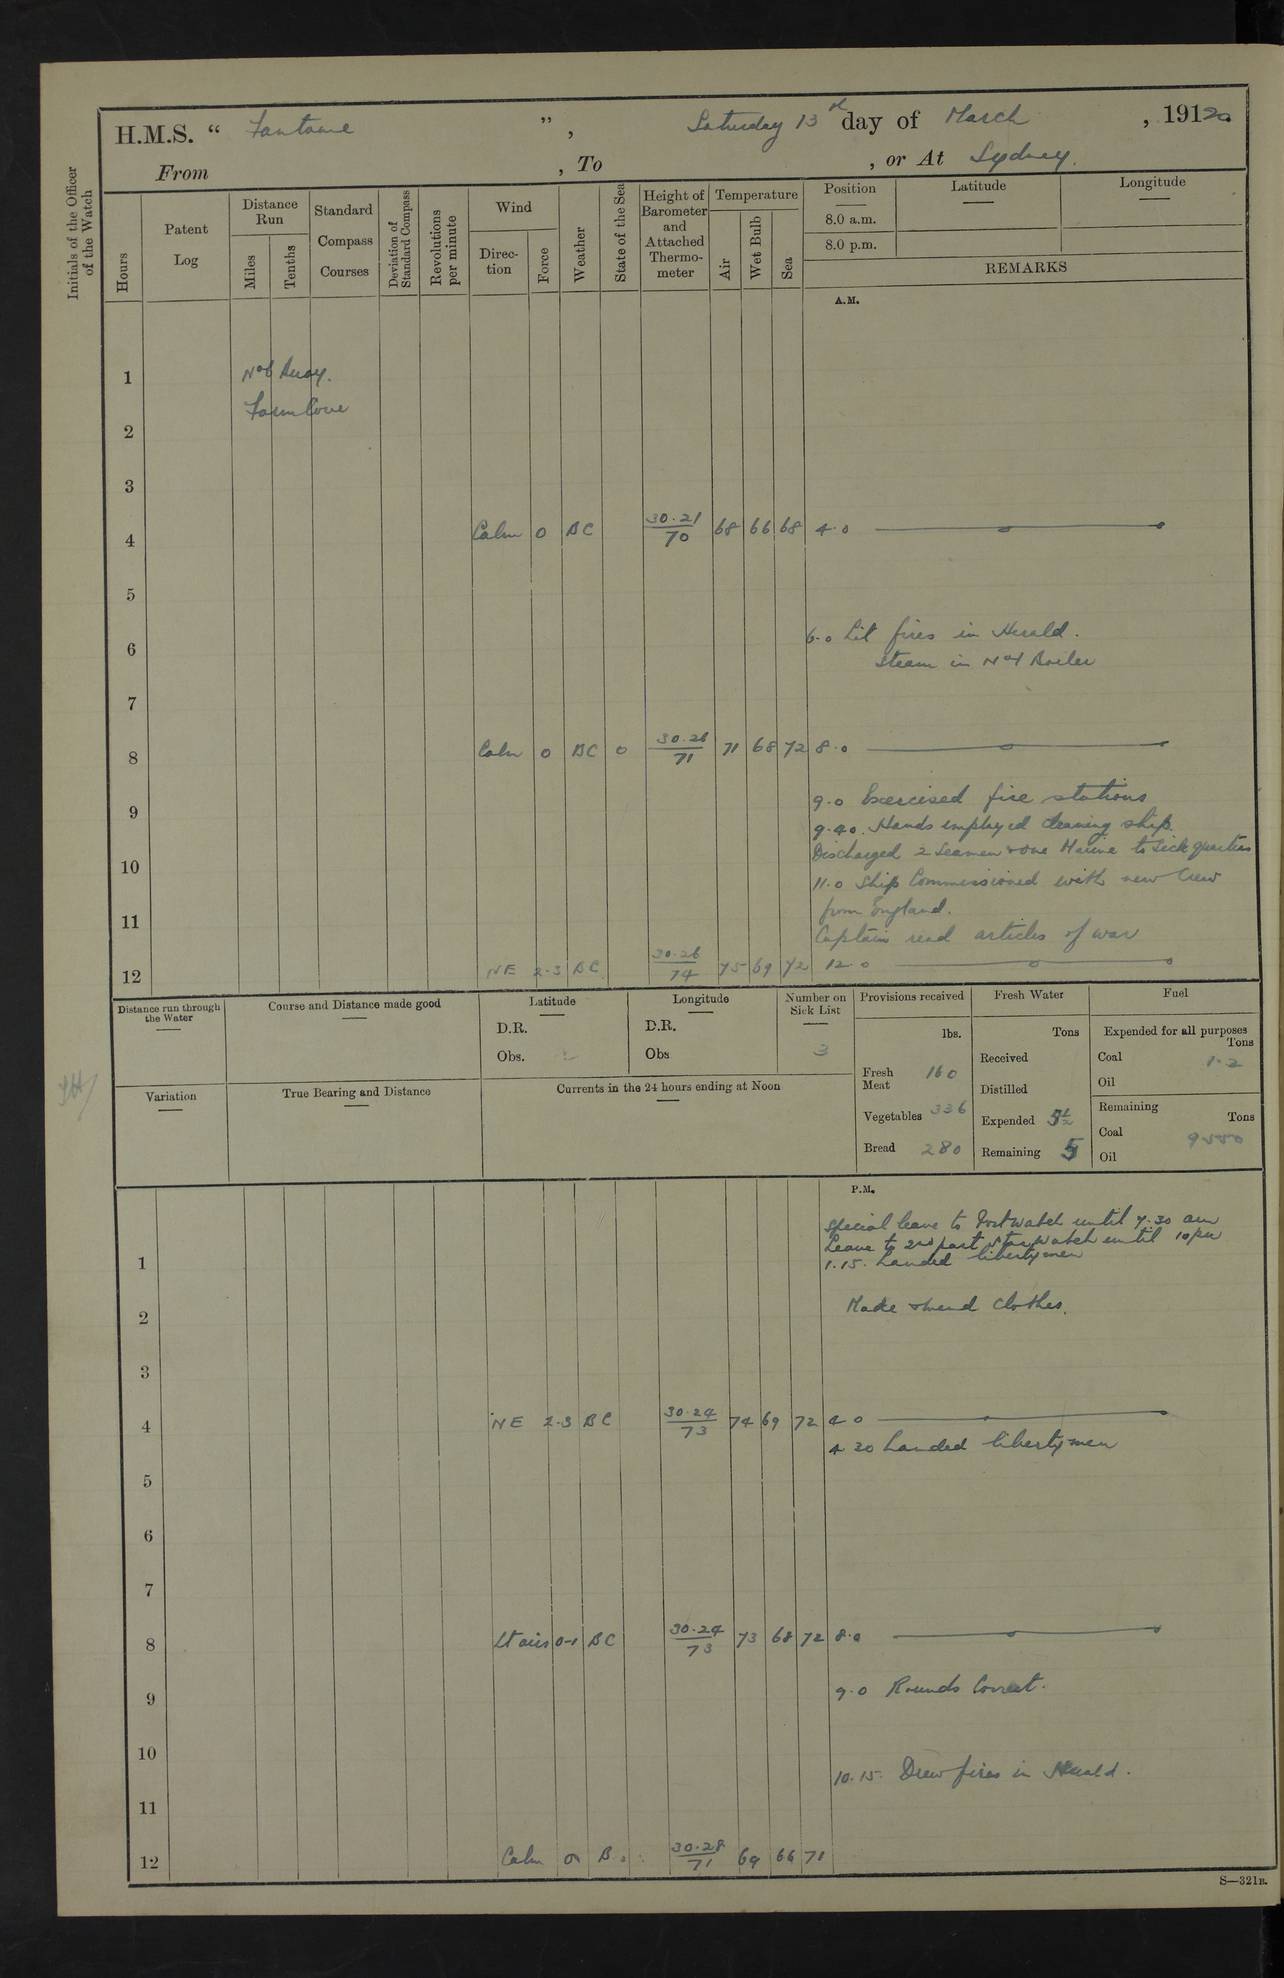 H.M.S. “ Fantome ” , Saturday 13 day of March , 19120
From , To , or At Sydney.
Initials of the Officer of the Watch
Hours
Patent Log
Distance Run
Miles
Tenths
Standard Compass Courses
Deviation of Standard Compass
Revolutions per minute
Wind
Direction
Force
Weather
State of the Sea
Height of Barometer and Attached Thermometer
Temperature
Air
Wet Bulb
Sea
Position
8.0 a.m.
8.0 p.m.
Latitude
Longitude
REMARKS
A.M.
1 No 6 Buoy.
Farm Cove
2
3
4 Calm 0 BC 30.21/70 68 66 68 4.0
5
6 6.0 Lit fires in Herald.
Steam in No 1 Boiler
7
8 Calm 0 BC 0 30.26/71 71 68 72 8.0
9 9.0 Exercised fire stations
9.40. Hands employed cleaning ship.
10 Discharged 2 Seamen & one Marine to Sick quarters
11.0 Ship Commissioned with new Crew
11 from England.
Captain read articles of war
12 NE 2-3 BC 30.26/74 75 69 72 12.0
Distance run through the Water
Course and Distance made good
Latitude
D.R.
Obs.
Longitude
D.R.
Obs
Number on Sick List
3
Provisions received
lbs.
Fresh Meat 160
Vegetables 336
Bread 280
Fresh Water
Tons
Received
Distilled
Expended 5½
Remaining
Fuel
Expended for all purposes
Tons
Coal 1.2
Oil
Remaining
Tons
Coal
Oil
Variation
True Bearing and Distance
Currents in the 24 hours ending at Noon
P.M.
Special leave to Port Watch until 7.30 am
Leave to 2nd part Star Watch until 10 pm
1 1.15. Landed liberty men
2 Make & mend Clothes.
3
4 NE 2-3 BC 30.24/73 74 69 72 4.0
4 20 Landed liberty men
5
6
7
8 Lt airs 0-1 BC 30.24/73 73 68 72 8.0
9 9.0 Rounds Correct.
10
10.15. Drew fires in Herald.
11
12 Calm 0 B. 30.28/71 69 66 71
S—321B.